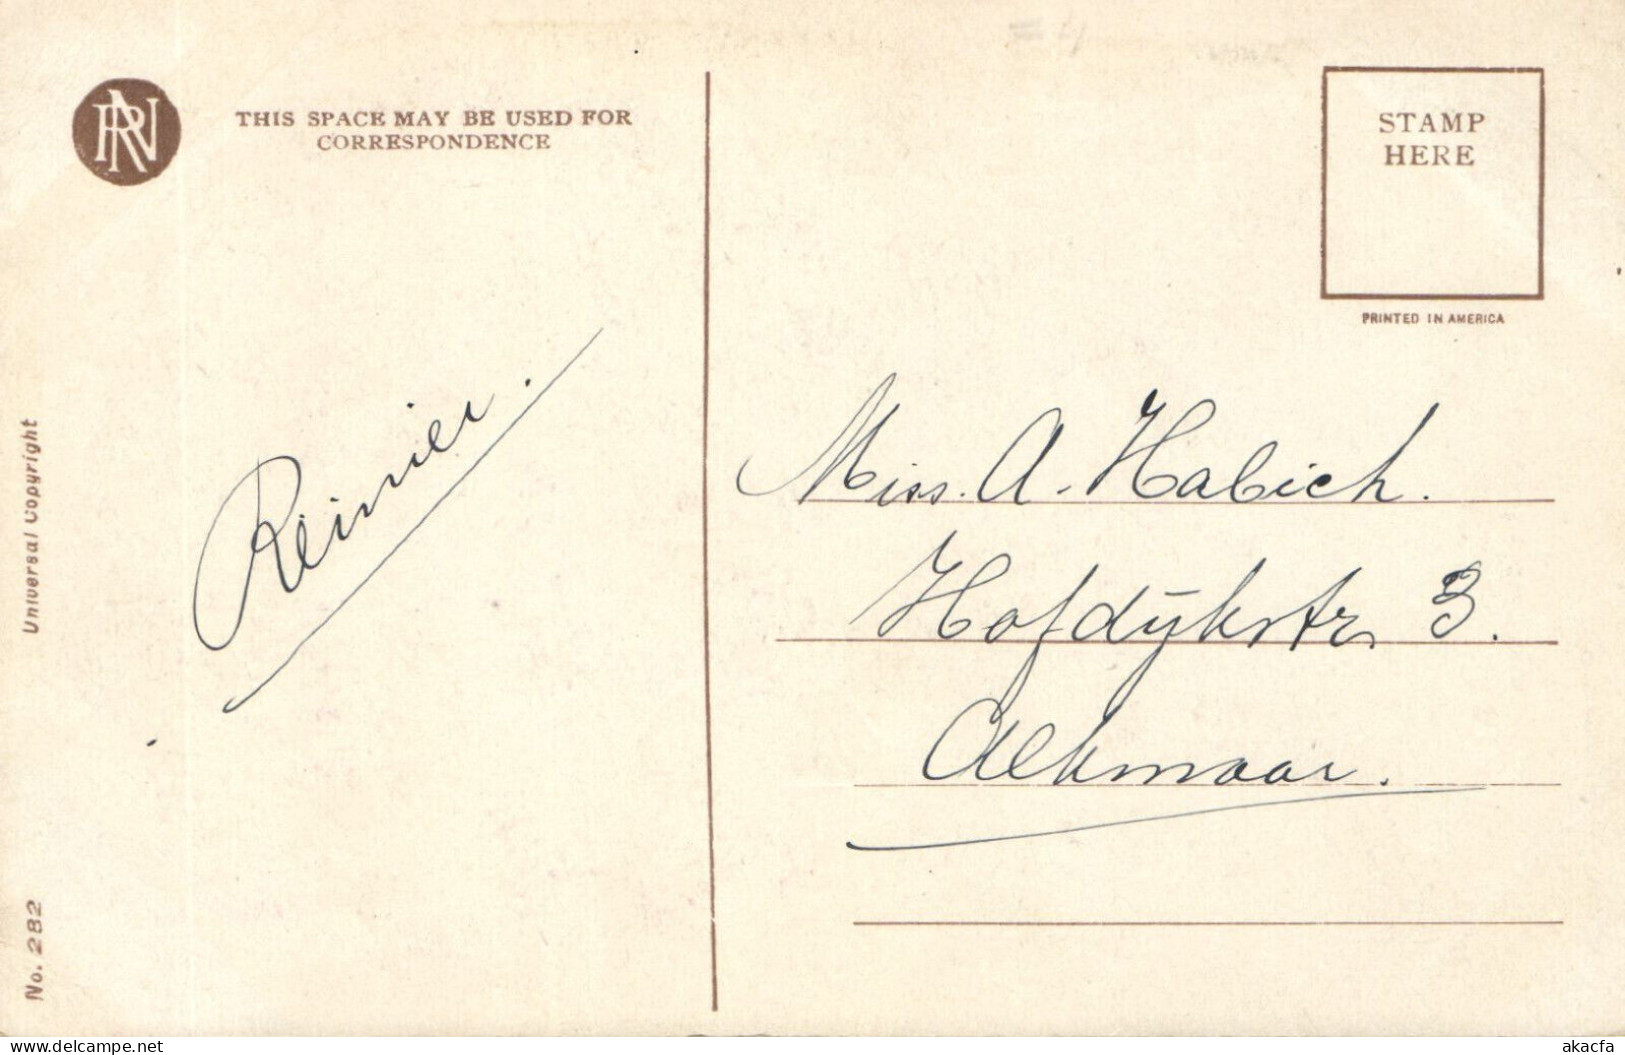 RN
THIS SPACE MAY BE USED FOR
CORRESPONDENCE
STAMP
HERE
PRINTED IN AMERICA
Reinier.
Miss. A. Habich.
Hofdijkstr 3.
Alkmaar.
Universal Copyright
No. 282
Delcampe.net
akacfa